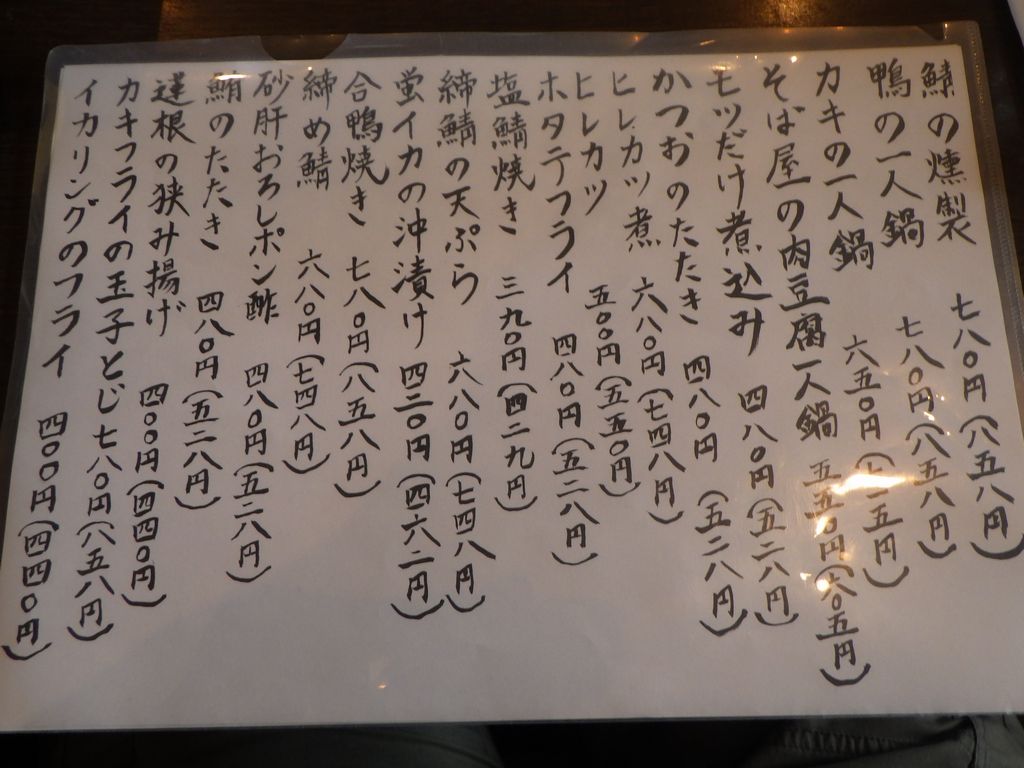 鯖の燻製 七八〇円(八五八円)
鴨の一人鍋 七八〇円(八五八円)
カキの一人鍋 六五〇円(七一五円)
そば屋の肉豆腐一人鍋 五五〇円(六〇五円)
モツだけ煮込み 四八〇円(五二八円)
かつおのたたき 四八〇円(五二八円)
ヒレカツ煮 六八〇円(七四八円)
ヒレカツ 五〇〇円(五五〇円)
ホタテフライ 四八〇円(五二八円)
塩鯖焼き 三九〇円(四二九円)
締鯖の天ぷら 六八〇円(七四八円)
蛍イカの沖漬け 四二〇円(四六二円)
合鴨焼き 七八〇円(八五八円)
締め鯖 六八〇円(七四八円)
砂肝おろしポン酢 四八〇円(五二八円)
鮪のたたき 四八〇円(五二八円)
蓮根の狭み揚げ 四〇〇円(四四〇円)
カキフライの玉子とじ 七八〇円(八五八円)
イカリングのフライ 四〇〇円(四四〇円)